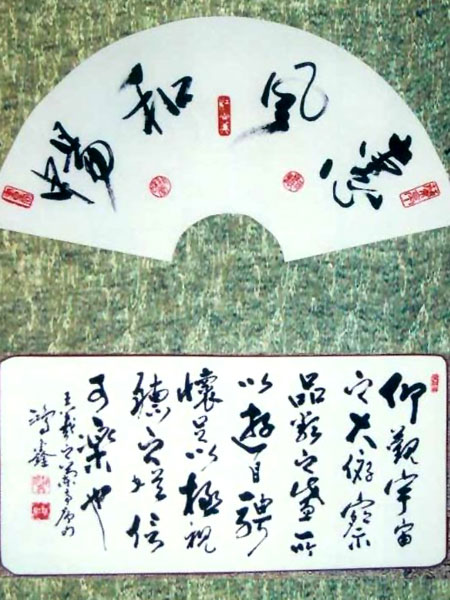 惠風和暢
仰觀宇宙
之大俯察
品類之盛所
以遊目騁
懷足以極視
聽之娛信
可樂也
王羲之蘭亭序句
鴻鑫